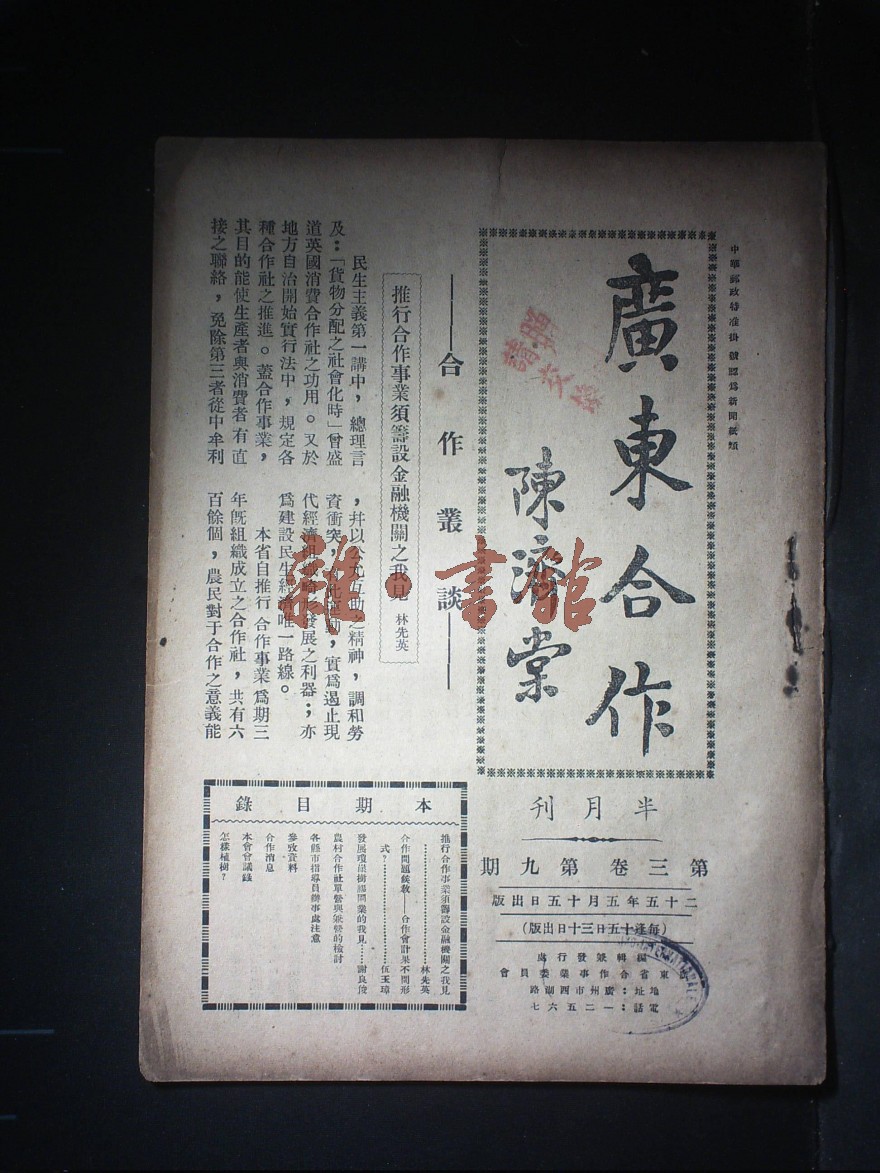 中華郵政特准掛號認爲新聞紙類
廣東合作
陳濟棠
半月刊
第三卷第九期
二十五年五月十五日出版
(每逢十五日三十日出版)
編輯兼發行處
廣東省合作事業委員會
地址:廣州市西湖路
電話:一二五六七
——合作叢談——
推行合作事業須籌設金融機關之我見 林先英
民生主義第一講中,總理言
及:「貨物分配之社會化時」曾盛
道英國消費合作社之功用。又於
地方自治開始實行法中,規定各
種合作社之推進。蓋合作事業,
其目的能使生產者與消費者有直
接之聯絡,免除第三者從中牟利
,幷以公允互助之精神,調和勞
資衝突,實爲遏止現
代經濟組織發展之利器;亦
爲建設民生經濟唯一路線。
本省自推行合作事業爲期三
年旣組織成立之合作社,共有六
百餘個,農民對于合作之意義能
本期目錄
推行合作事業須籌設金融機關之我見
……林先英
合作問題候敎——合作會計果不問形
式?……伍玉璋
發展瓊崖樹膠問業的我見……謝良俊
農村合作社單營與兼營的檢討
各縣市指導員辦事處注意
參攷資料
合作消息
本會會議錄
怎樣植樹?
雜·書館